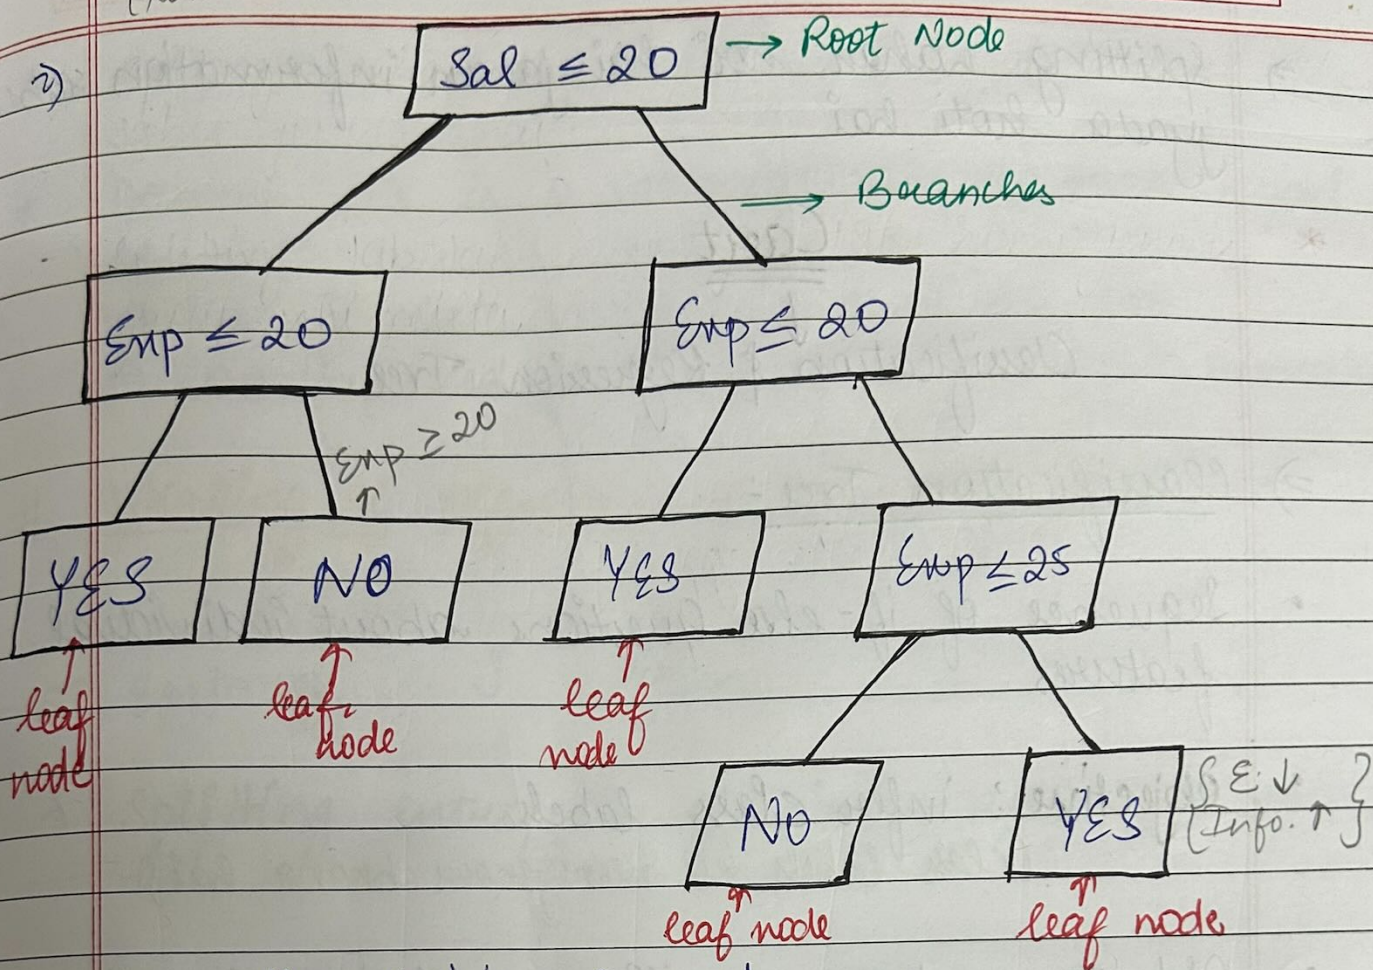 2)
Sal ≤ 20 → Root Node
→ Branches
Exp ≤ 20
Exp ≤ 20
Exp ≥ 20
↑
YES
NO
YES
Exp ≤ 25
leaf
node
leaf
node
leaf
node
NO
YES
{ E ↓
Info. ↑ }
leaf node
leaf node